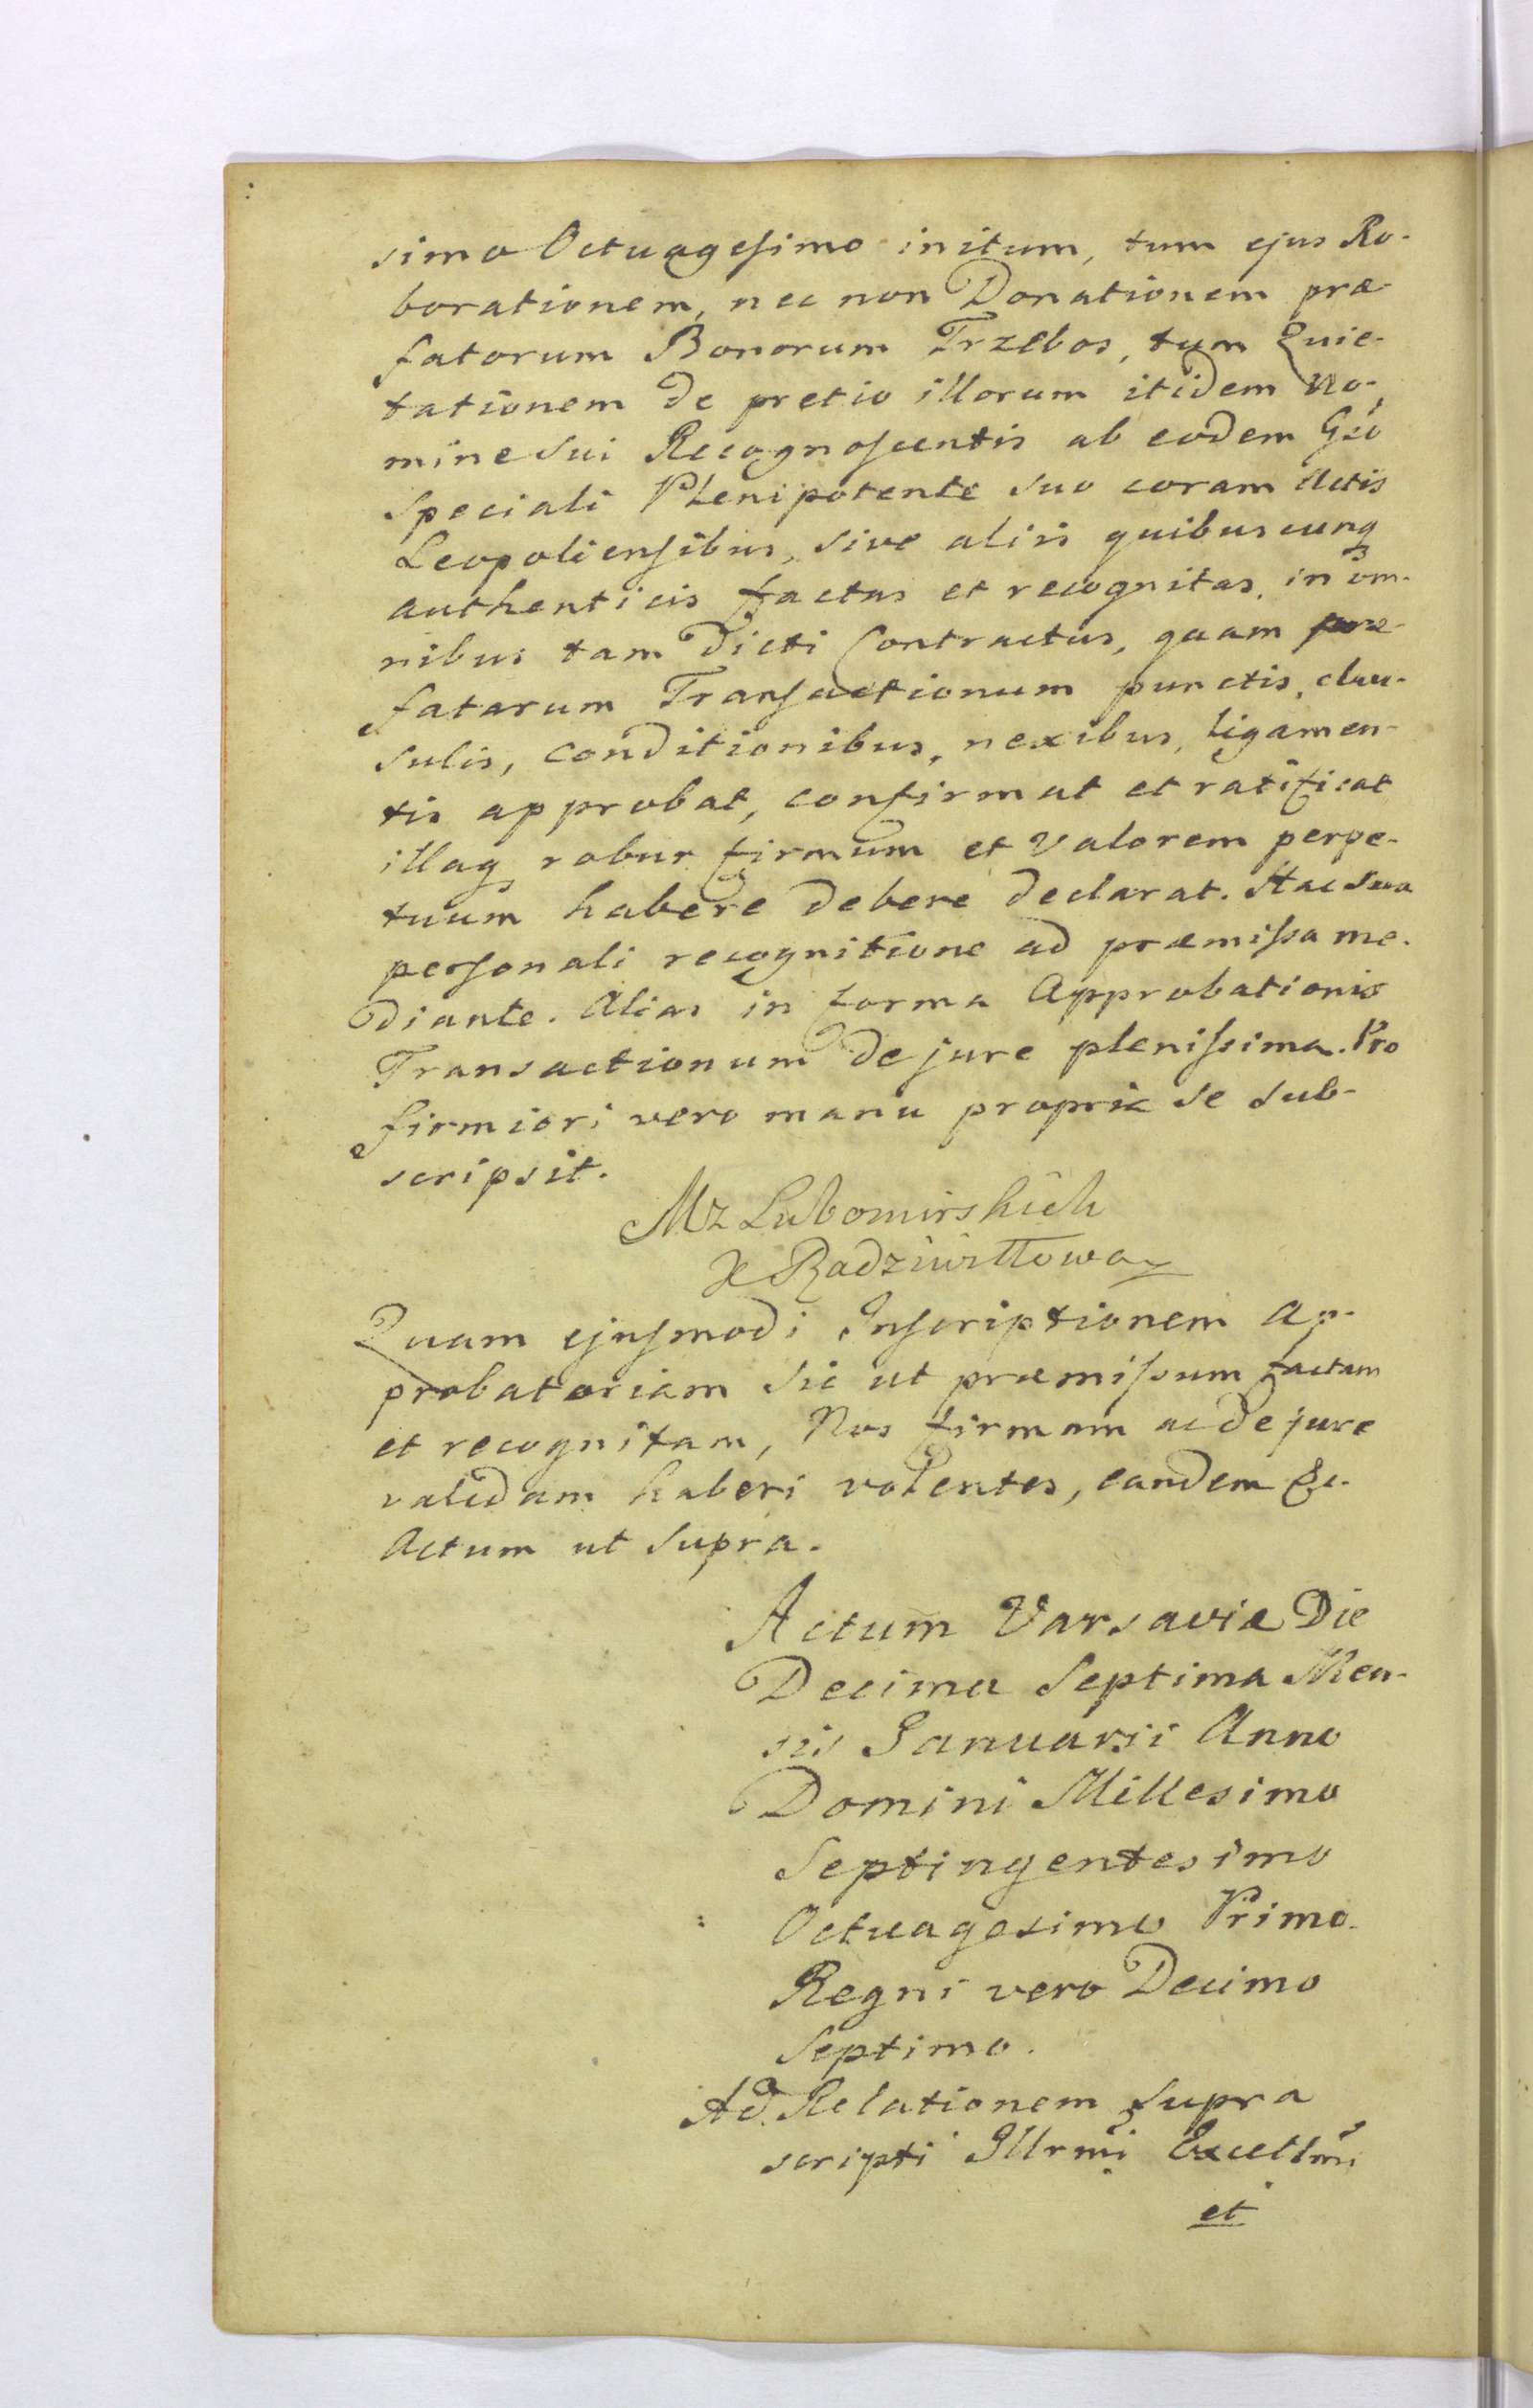 simo Octuagesimo initum, tum ejus Ro-
borationem, nec non Donationem præ-
fatorum Bonorum Trzebos, tum Quie-
tationem de pretio illorum itidem No-
mine Sui Recognoscentis ab eodem Gso
Speciali Plenipotente suo coram Actis
Leopoliensibus, sive aliis quibuscunq
authenticis factas et recognitas, in om-
nibus tam dicti Contractus, quam præ-
fatarum Transactionum punctis, clau-
sulis, conditionibus, nexibus, ligamen-
tis approbat, confirmat et ratificat
illaq robur firmum et valorem perpe-
tuum habere debere declarat. Hac Sua
personali recognitione ad præmissa me-
diante. Alias in forma Approbationis
Transactionum de jure plenissima. Pro
firmiori vero manu propria se sub-
scripsit.
M z Lubomirskich
X Radziwiłłowa
Quam ejusmodi Inscriptionem Ap-
probatoriam sic ut præmissum factam
et recognitam, Nos firmam ac de jure
validam haberi volentes, eandem &c.
Actum ut Supra.
Actum Varsaviæ Die
Decima Septima Men-
sis Januarii Anno
Domini Millesimo
Septingentesimo
Octuagesimo Primo.
Regni vero Decimo
Septimo.
Ad Relationem supra
scripti Illrmi Excellmi
et